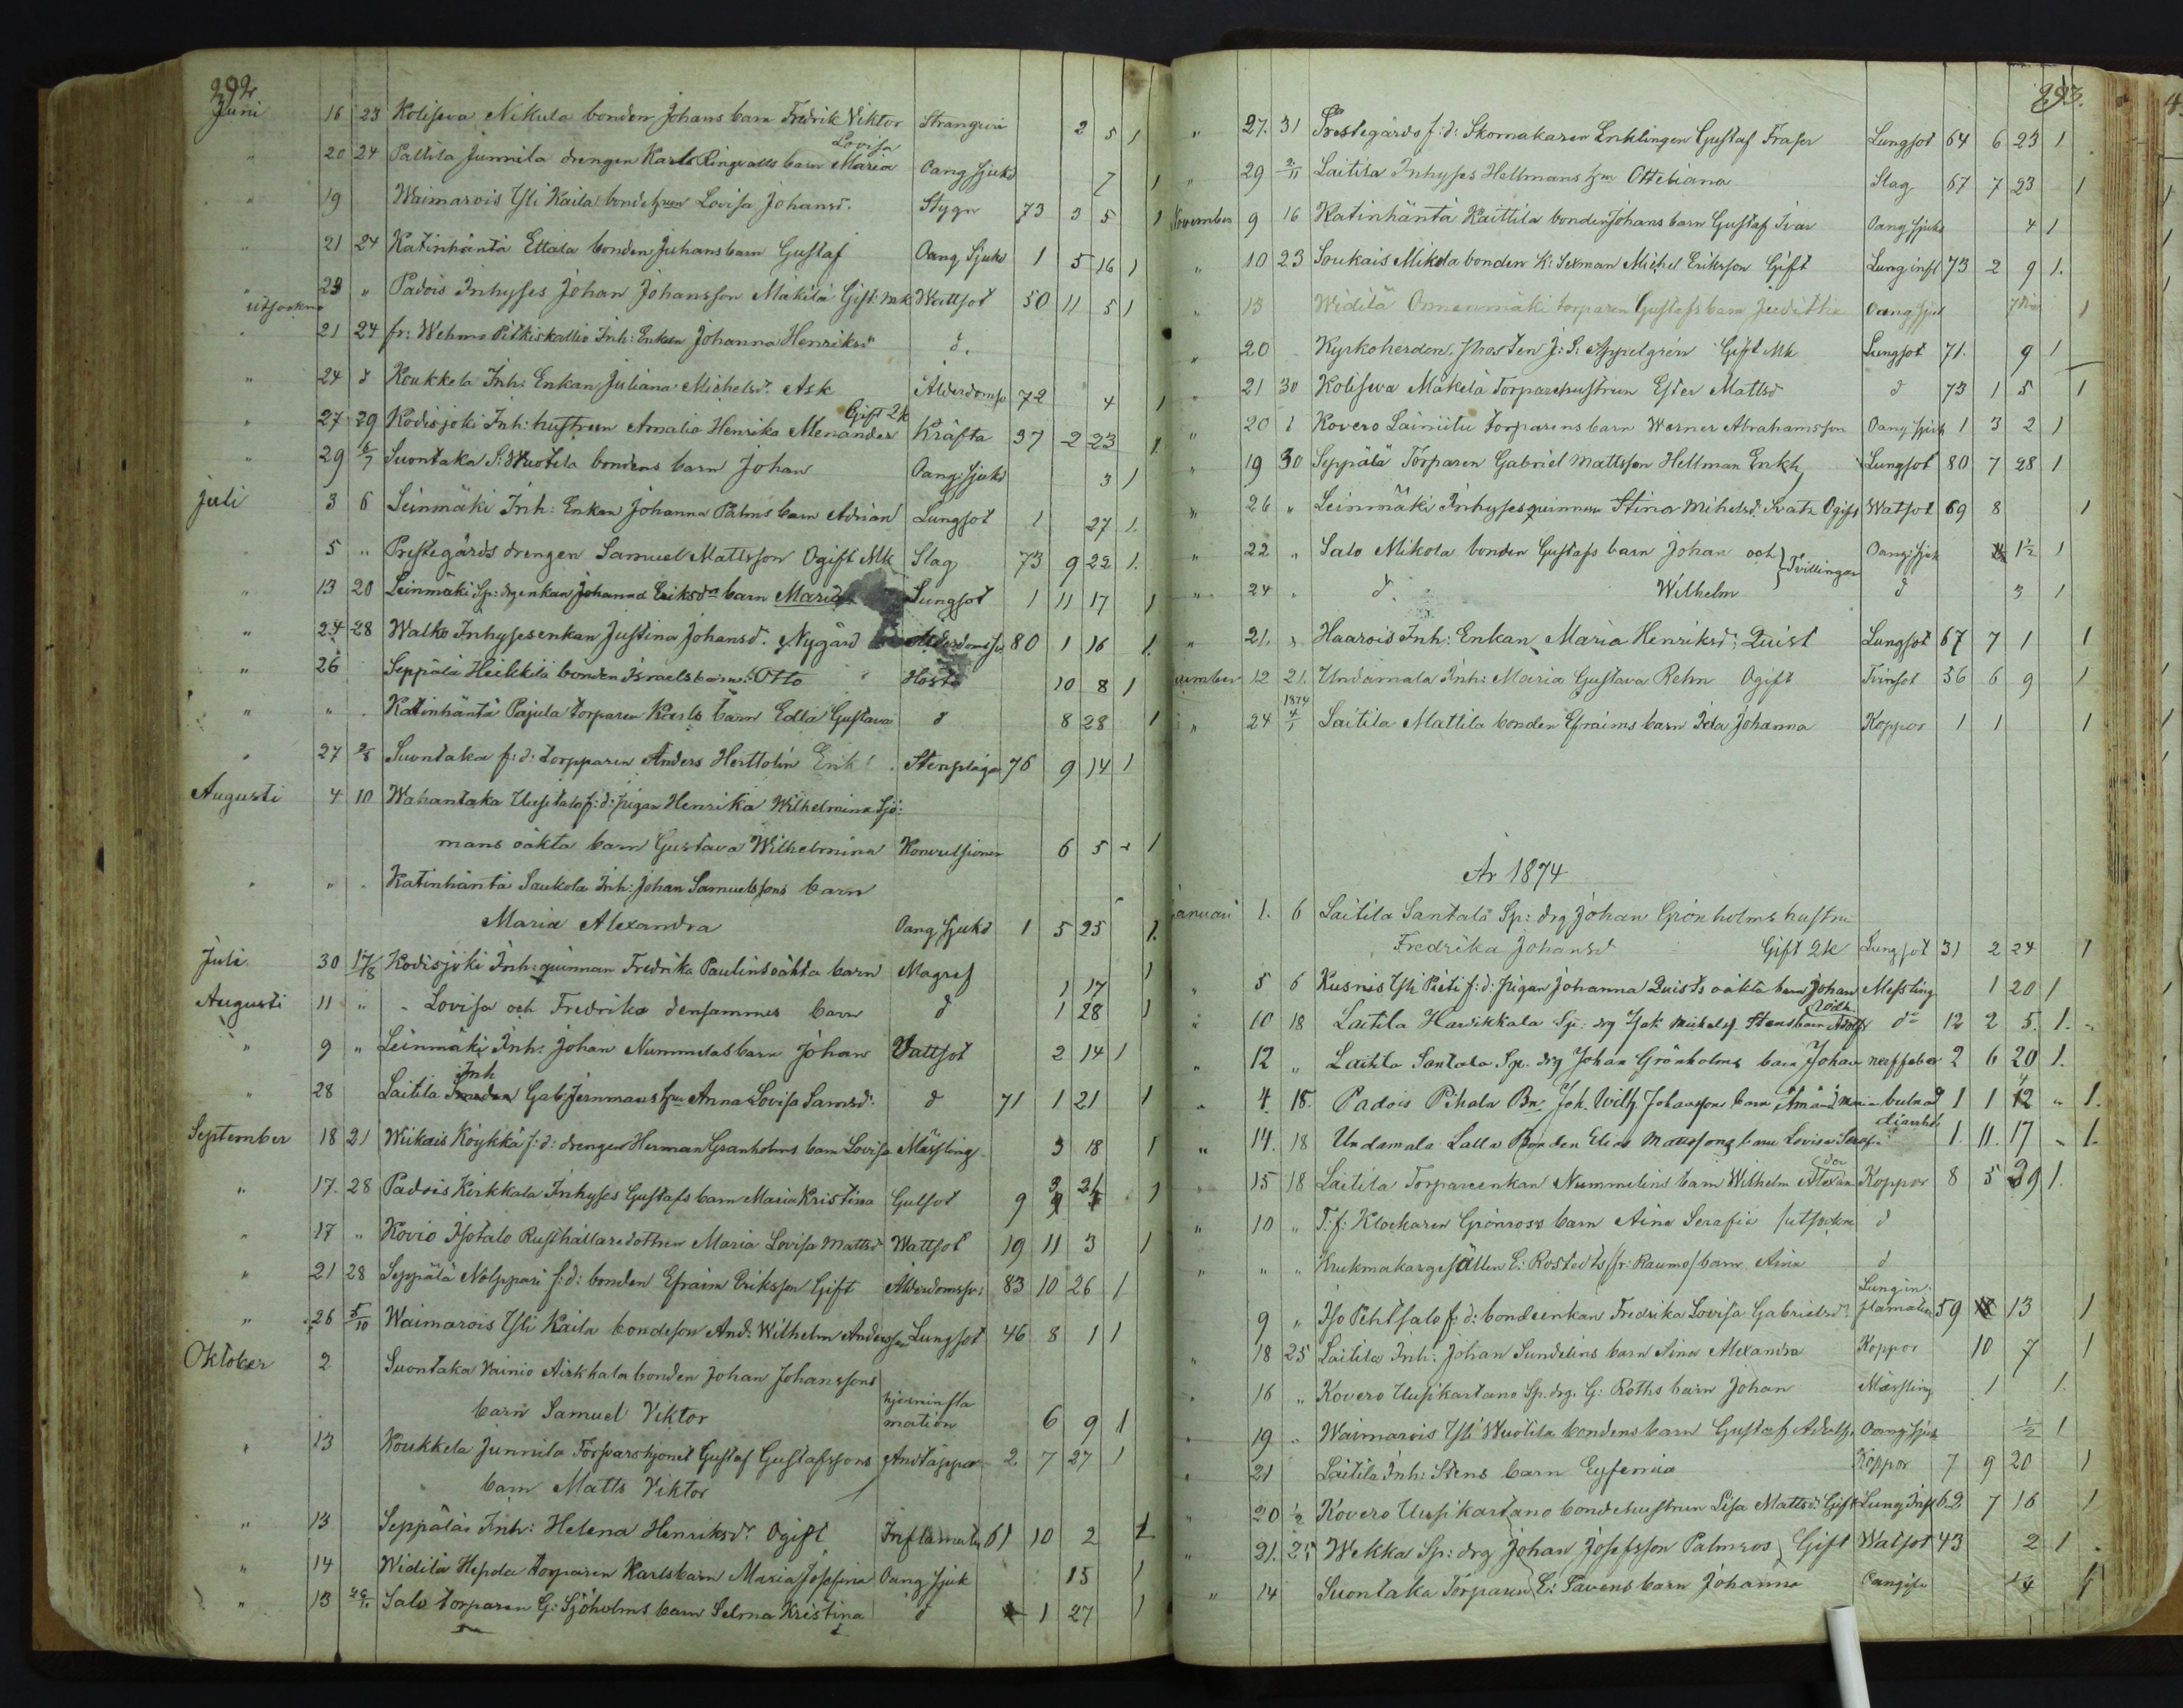 292
Juni 16 23 Kolisewa Nikula bonden Johans barn Fredrik Viktor 2 5 1
Lovisa
" 20 24 Pattila Junnila drengen Karl Ringvalls barn Maria Oang sjukd 7 1
" 19 Waimarois Ysti Kaila bondehun Lovisa Johansd. Stygn 73 3 5 1
" 21 24 Katinhäntä Ettala bonden Juhans barn Gustaf Oang. Sjukd 1 5 16 1
" 23 " Padois Inhyses Johan Johansson Mäkilä Gift: Mk Wattsot 50 11 5 1
utsockne
21 24 fr: Wehmo Pitkiskallio Inh: Enkan Johanna Henriksd d.
" 24 d Koukkela Inh: Enkan Juliana Michelsd. Ask Ålderdoms 72 4 1
Gift 2k
" 27 29 Kodisjoki Inh: hustrun Amalia Henrika Menander Kräfta 37 2 23 1
" 29 6/7 Suontaka S: Wuotila bondens barn Johan Oang: sjukd 3 1
Juli 3 6 Leinmäki Inh: Enkan Johanna Palms barn Adrian Lungsot 1 27 1.
5 " Prestegårds drengen Samuel Mattsson Ogift Mk Slag 73 9 22 1.
" 13 20 Leinmäki Sp: drg enkan Johanna Eriksda barn Maria Lungsot 1 11 17 1
" 24 28 Walko Inhysesenkan Justina Johansd. Nygård Ålderdomss. 80 1 16 1.
" 26 Seppälä Heikkilä bonden Israels barn Otto Hosta 10 8 1
" " Katinhäntä Pajula torparen Karls barn Edla Gustava d 8 28 1
" 27 Suontaka f: d: torpparen Anders Herttolin Enk Stenplåga 76 9 14 1
Augusti 4 10 Wahantaka Uusitalo f: d: pigan Henrika Wilhelmina Sjö:
mans oäkta barn Gustava Wilhelmina Konvulsioner 6 5 1
" " Katinhäntä Saukola Inh: Johan Samuelssons barn
Maria Alexandra Oang sjukd 1 5 25 1.
Juli 30 17/8 Kodisjoki Inh: quinnan Fredrika Paulins oäkta barn Magref 1 17 1
Augusti 11 " Lovisa och Fredrika densammes barn d 1 28 1
" 9 " Leinmäki Inh: Johan Nummelas barn Johan Vattsot 2 14 1
Inh
" 28 Laitila Gab: Jernmans hu Anna Lovisa Samsd. d 71 1 21 1
September 18 21 Wiikais Köykkä f: d: drengen Herman Granholms barn Lovisa Mässling 3 18 1
" 17. 28 Padois Kirkkala Inhyses Gustafs barn Maria Kristina Gulsot 9 3 24 1
" 17 " Kovio Isotalo Rusthållaredottren Maria Lovisa Mattsd Wattsot 19 11 3 1
" 21 28 Seppälä Nolppari f: d: bonden Efraim Eriksson Gift Ålderdomssv: 83 10 26 1
" 26 5/10 Waimarois Ysti Kaila bondeson And: Wilhelm Andersson Lungsot 46 8 1 1
Oktober 2 Suontaka Vainio Airkkala bonden Johan Johanssons
barn Samuel Viktor hjerninfla mation 6 9 1
" 13 Koukkela Junnila Torparehjonet Gustaf Gustafssons Andtäppa 2 7 27 1
barn Matts Viktor
" 13 Seppälä Inh: Helena Henriksd: Ogift Inflamation 61 10 2 1
" 14 Widilä Hepola torparen Karls barn Maria Josefina Oang sjuk 15 1
" 13 Salo torparen G: Sjöholms barn Selma Kristina d 1 27 1
293.
" 27. 31 Prestegårds f: d: Skomakaren Enklingen Gustaf Fraser Lungsot 64 6 23 1
" 29 2/11 Laitila Inhyses Hellmans hu Ottiliana Slag 67 7 23 1
November 9 16 Katinhäntä Kaittila bonden Johans barn Gustaf Ivar Oang sjukd 4 1
" 10 23 Soukais Mikola bonden K: Sexman Michel Eriksson Gift Lung infl 73 2 9 1.
" 13 Widilä Onnenmäki torparen Gustafs barn Juditha Oang sjuk 1
" 20 Kyrkoherden, Prosten J: S: Appelgrén Gift Mk Lungsot 71. 9 1
" 21 30 Kolisewa Mäkelä Torparehustrun Ester Mattsd d 73 1 5 1
" 20 Kovero Lainiitu torparens barn Werner Abrahamsson Oang sjuk 1 3 2 1
" 19 30 Seppälä Torparen Gabriel Mattsson Hellman Enkl, Lungsot 80 7 28 1
" 26 " Leinmäki Inhysesquinnan Stina Mihelsd. Ogift Watsot 69 8 1
" 22 " Salo Mikola bonden Gustafs barn Johan och Oang: sjuk 1½ 1
Tvillingar
" 24 " d. Wilhelm d 3 1
" 21. " Haarois Inh: Enkan Maria Henriksd: Quist Lungsot 67 7 1 1
December 12 21. Undamala Inh: Maria Gustava Rehn Ogift Tvinsot 56 6 9 1
1874
" 24 4/1 Laitila Mattila bonden Efraims barn Ida Johanna Koppor 1 1 1
År 1874
Januari 1. 6 Laitila Santala Sp: drg Johan Grönholms hustru
Fredrika Johansd Gift 2k Lungsot 31 2 24 1
" 5 6 Kusnis Ysti Pieti f: d: pigan Johanna Quists oäkta barn Johan Messling 1 20 1
Wilh.
" 10 18 Laitila Haukkala Sp: drg Isak Michelss. Stens barn Adolf do 12 2 5. 1.
" 12 " Laitila Santala Sp. drg Johan Grönholms barn Johan nerffeber 2 6 20 1.
" 4. 18. Padois Pihala Bn: Joh. Wilh Johanssons barn Amand Maria 1 1 12 " 1.
diarrhé
" 14. 18 Undamala Lalla Bonden Elias Mattssons barn Lovisa Seraf. 1. 11. 17 " 1.
der
" 15 18 Laitila Torpareenkan Nummelins barn Wilhelm Alexan Koppor 8 5 29 1.
" 10 " T: f: Klockaren Grönroos barn Aina Serafia /utsockne d
" " " Krukmakaregesällen E: Rostedts /fr: Raumo/ barn Aina d
9 " Iso Pehtsalo f: d: bondeenkan Fredrika Lovisa Gabrielsd. Lungin- flamation 59 13 1
" 18 25 Laitila Inh: Johan Sundelins barn Aina Alexandra Koppor 10 7 1
" 16 " Kovero Uusikartano Sp. drg. G: Roths barn Johan Mässling 1 1.
19 " Waimarois Ysti Wuotila bondens barn Gustaf Adolf Oang sjuk ½ 1
" 21 Laitila Inh: Stens barn Eufemia Koppor 7 9 20 1
" 20 ½ Kovero Uusikartano bondehustrun Lisa Mattsd: Gift Lung Infl 62 7 16 1
" 21. 25 Wekka Sp: drg Johan Josefsson Palmroos Gift Watsot 43 2 1
" 14 Suontaka Torparen E: Pavens barn Johanna Oangifv 1